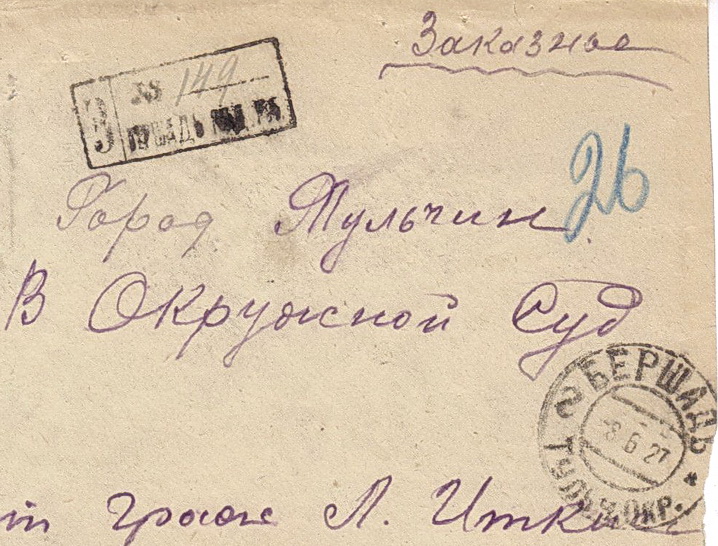 Заказное
З № 149
БЕРШАДЬ
26
Город Тульчин
В Окружной Суд
БЕРШАДЬ * ТУЛЬЧ. ОКР.
-8 6 27
от граж Л. Итки